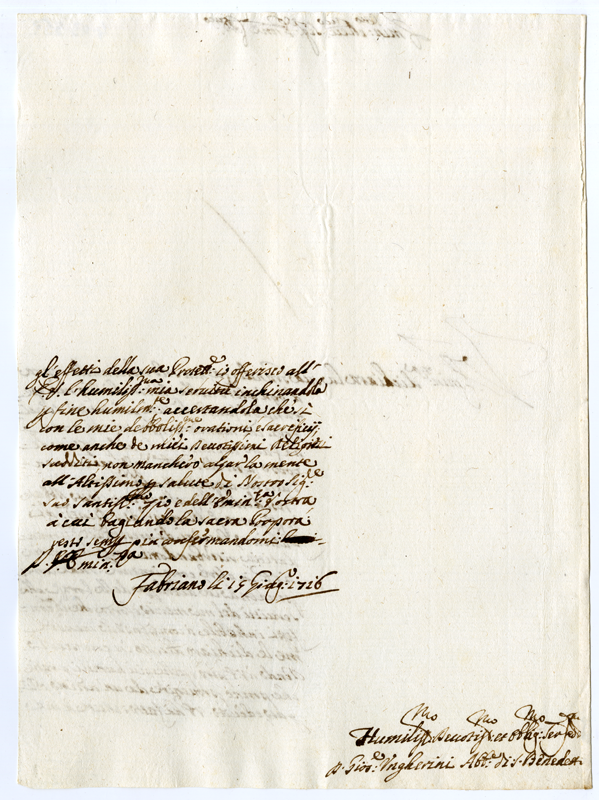 gl'effetti della sua Protett.e io offerisco all'
l'humiliss.ma mia servitù inchinandola
p fine humilm.te accertandola che si
con le mie debboliss.me orationi e sacrificij,
come anche de miei devotissimi Religiosi
sudditi non mancherò alzar la mente
all'Altissimo p salute di Nostro Sig.re
e dell'Emin.za Vostra
à cui bagiando la sacra Porpora
resto semp più confirmandomi
Fabriano li 15 Giug.o 1716
Humiliss.mo Devotiss.mo et obblig.mo
D. Giov. Ungherini Abb.e di S. Benedett.